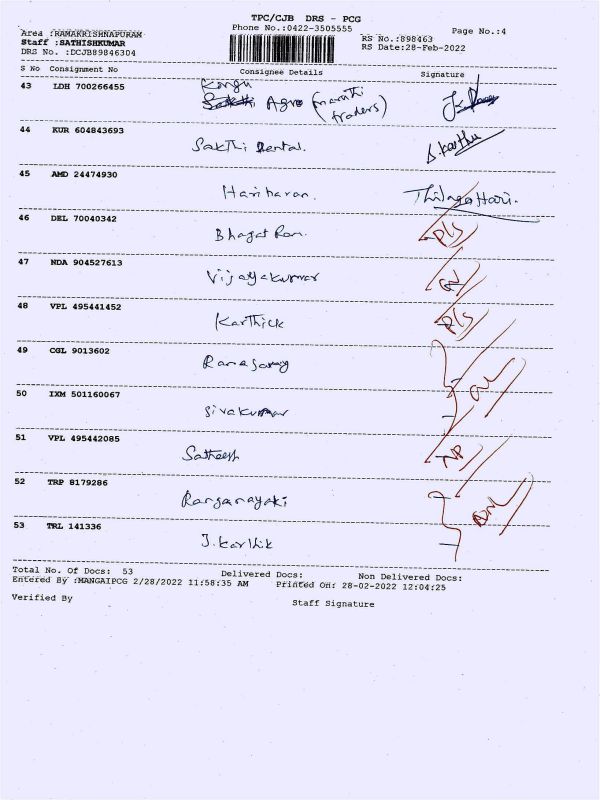 TPC/CJB DRS - PCG
Phone No.:0422-3505555
Page No.:4
Area :RAMAKRISHNAPURAM
RS No.:898463
Staff :SATHISHKUMAR
RS Date:28-Feb-2022
DRS No. :DCJB89846304
S No Consignment No Consignee Details Signature
43 LDH 700266455 Kongu
Agro (maruthi traders)
44 KUR 604843693
Sakthi Dental. S Karthi
45 AMD 24474930
Hariharan. Thilaga Hari.
46 DEL 70040342
Bhagat Ram. PLS
47 NDA 904527613
Vijayakumar
48 VPL 495441452
Karthick PLS
49 CGL 9013602
Ramasamy
50 IXM 501160067
Sivakumar
51 VPL 495442085
Satheesh NP
52 TRP 8179286
Ranganayaki
53 TRL 141336
J. Karthik
Total No. Of Docs: 53 Delivered Docs: Non Delivered Docs:
Entered By :MANGAIPCG 2/28/2022 11:58:35 AM Printed On: 28-02-2022 12:04:25
Verified By Staff Signature